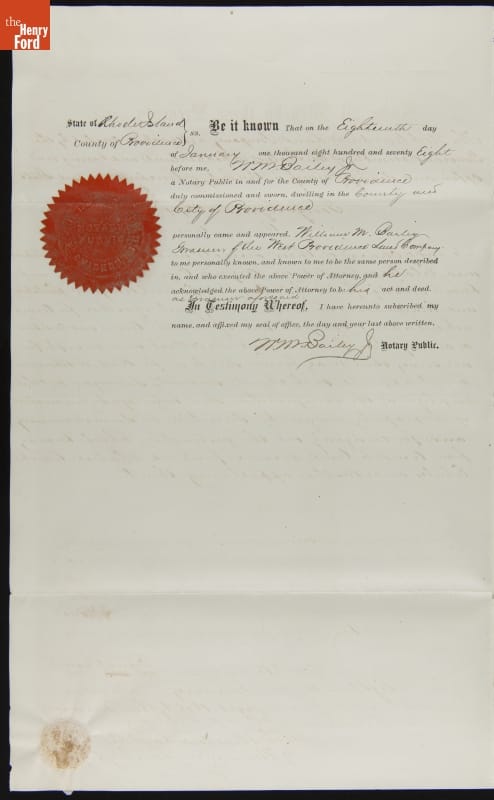 the
Henry
Ford
State of Rhode Island } ss. Be it known That on the Eighteenth day
County of Providence
of January one thousand eight hundred and seventy Eight
before me, Wm Bailey Jr
a Notary Public in and for the County of Providence
duly commissioned and sworn, dwelling in the County and
City of Providence
personally came and appeared William M. Bailey
Treasurer of the West Providence Land Company
to me personally known, and known to me to be the same person described
in, and who executed the above Power of Attorney, and he
acknowledged the above Power of Attorney to be his act and deed.
as Treasurer aforesaid
In Testimony Whereof, I have hereunto subscribed my
name, and affixed my seal of office, the day and year last above written,
Wm Bailey Jr Notary Public.
NOTARY
PUBLIC